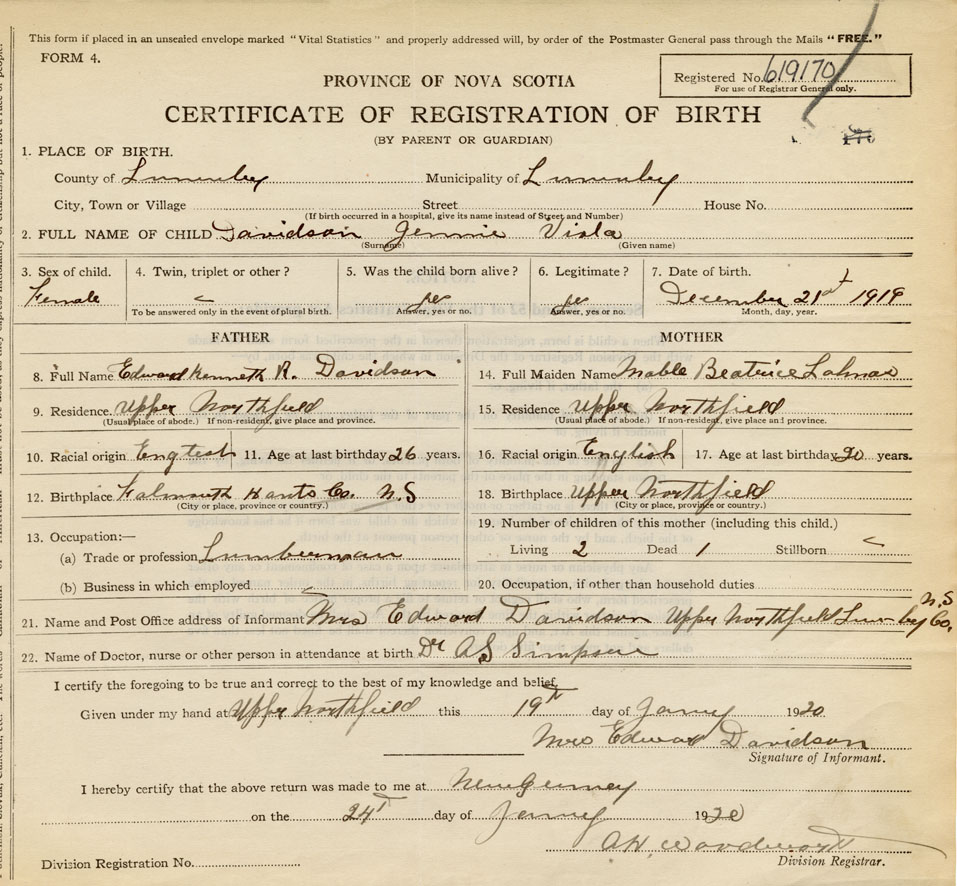 This form if placed in an unsealed envelope marked "Vital Statistics" and properly addressed will, by order of the Postmaster General pass through the Mails "FREE."
FORM 4.
Registered No. 619170
For use of Registrar General only.
PROVINCE OF NOVA SCOTIA
CERTIFICATE OF REGISTRATION OF BIRTH
(BY PARENT OR GUARDIAN)
1. PLACE OF BIRTH.
County of Lunenbg Municipality of Lunenbg
City, Town or Village Street House No.
(If birth occurred in a hospital, give its name instead of Street and Number)
2. FULL NAME OF CHILD Davidson Jennie Viola
(Surname) (Given name)
3. Sex of child. 4. Twin, triplet or other? 5. Was the child born alive? 6. Legitimate? 7. Date of birth.
Female yes yes December 21st 1919
To be answered only in the event of plural birth. Answer, yes or no. Answer, yes or no. Month, day, year.
FATHER MOTHER
8. Full Name Edward Kenneth R. Davidson 14. Full Maiden Name Mable Beatrice
9. Residence. Upper Northfield 15. Residence Upper Northfield
(Usual place of abode.) If non-resident, give place and province. (Usual place of abode.) If non-resident, give place and province.
10. Racial origin English 11. Age at last birthday 26 years. 16. Racial origin English 17. Age at last birthday 20 years.
12. Birthplace Falmouth Hants Co. N.S 18. Birthplace Upper Northfield
(City or place, province or country.) (City or place, province or country.)
13. Occupation:— 19. Number of children of this mother (including this child.)
(a) Trade or profession Lumberman Living 2 Dead 1 Stillborn
(b) Business in which employed 20. Occupation, if other than household duties
21. Name and Post Office address of Informant Mrs Edward Davidson Upper Northfield Lun-bg Co. N.S
22. Name of Doctor, nurse or other person in attendance at birth Dr AS Simpson
I certify the foregoing to be true and correct to the best of my knowledge and belief,
Given under my hand at Upper Northfield this 19th day of Jany 1920
Mrs Edward Davidson
Signature of Informant.
I hereby certify that the above return was made to me at New Germany
on the 24th day of Jany 1920
A.H. Woodworth
Division Registration No. Division Registrar.